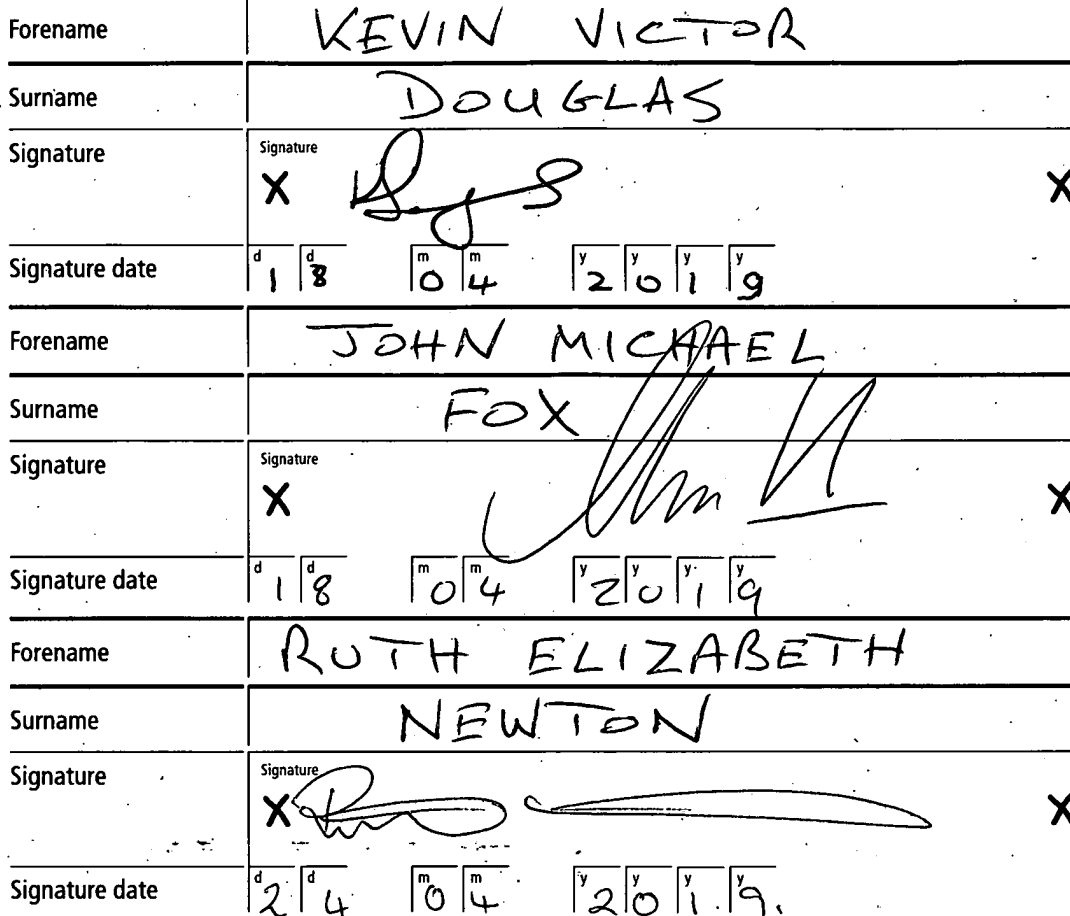 Forename KEVIN VICTOR
Surname DOUGLAS
Signature Signature
X X
Signature date d 1 d 8 m 0 m 4 y 2 y 0 y 1 y 9
Forename JOHN MICHAEL
Surname FOX
Signature Signature
X X
Signature date d 1 d 8 m 0 m 4 y 2 y 0 y 1 y 9
Forename RUTH ELIZABETH
Surname NEWTON
Signature Signature
X X
Signature date d 2 d 4 m 0 m 4 y 2 y 0 y 1 y 9.